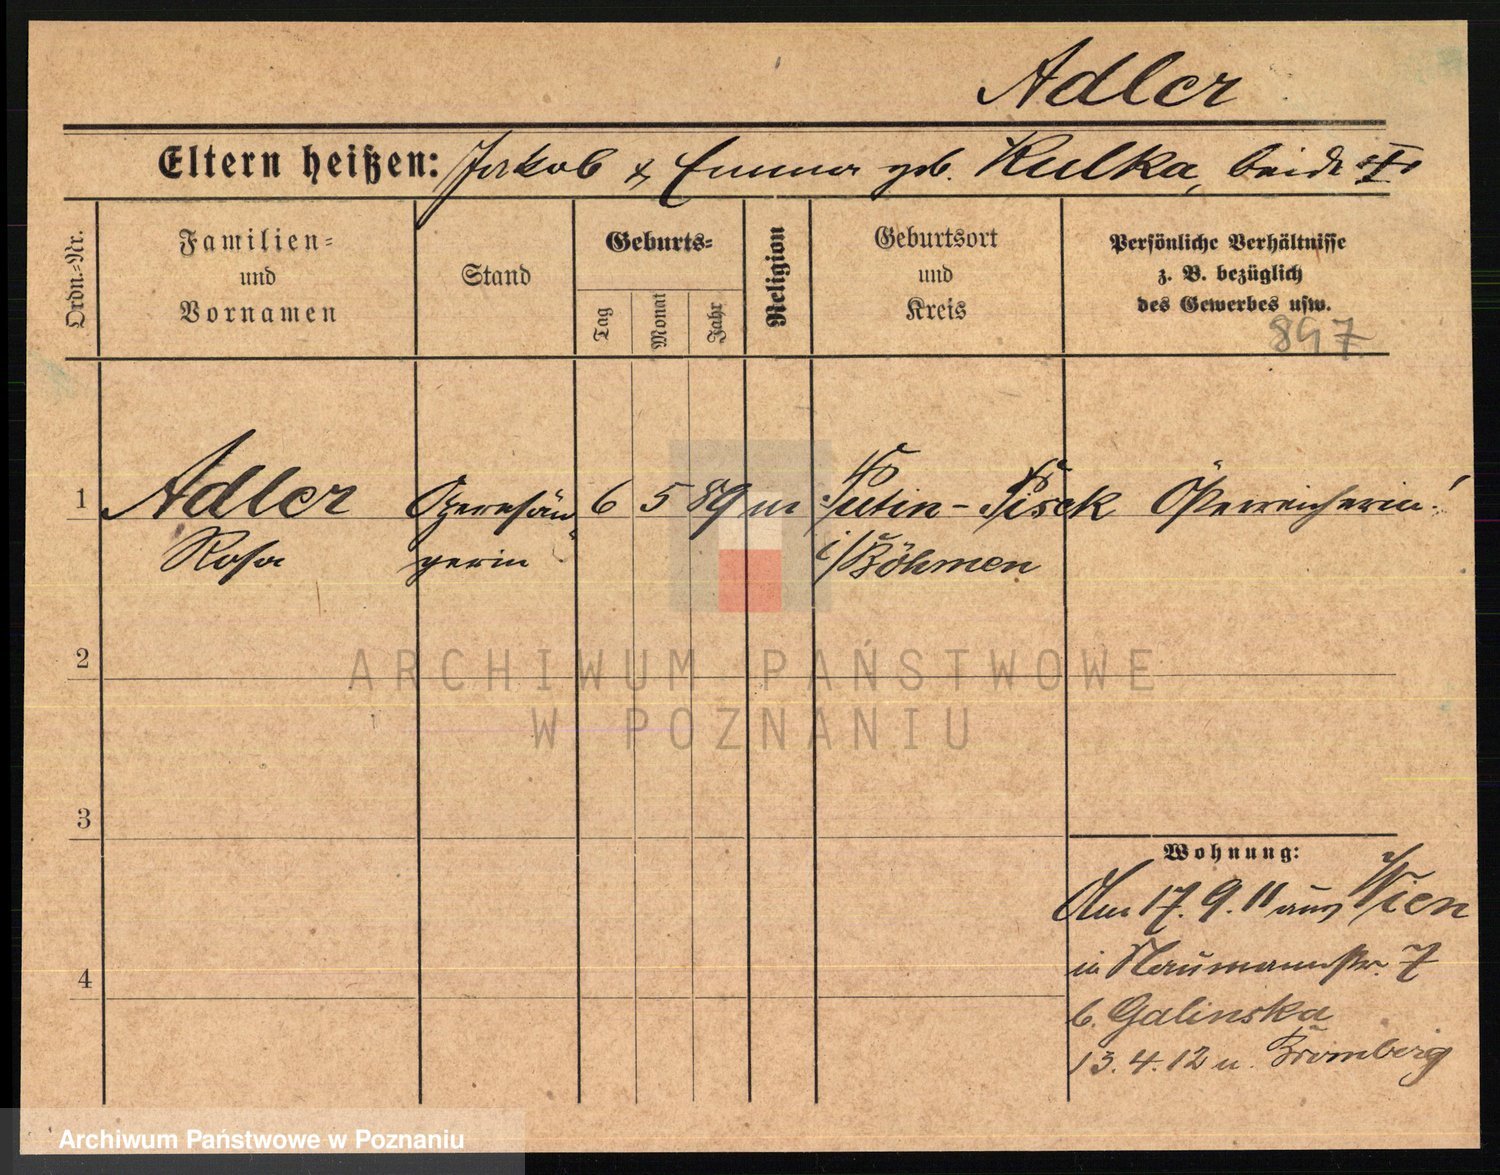 Adler
Eltern heißen: Jakob & Emma geb. Kulka, beide †
Ordn.=Nr.
Familien=
und
Vornamen
Stand
Geburts=
Tag
Monat
Jahr
Religion
Geburtsort
und
Kreis
Persönliche Verhältnisse
z. B. bezüglich
des Gewerbes usw.
897
1 Adler Opernsän 6 5 89 m Putin - Pisek Österreicherin!
Rosa gerin i/Böhmen
2
ARCHIWUM PAŃSTWOWE
W POZNANIU
3
Wohnung:
Am 17. 9. 11 aus Wien
in Naumannstr. 7
4
b. Galinska
13. 4. 12 n. Bromberg
Archiwum Państwowe w Poznaniu